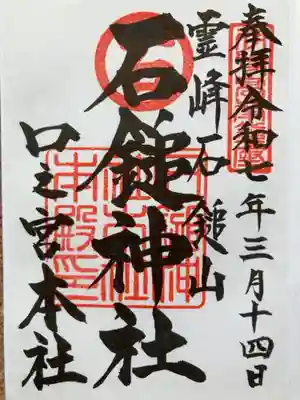 奉拝令和七年三月十四日
霊峰石鎚山
石鎚神社
口之宮本社